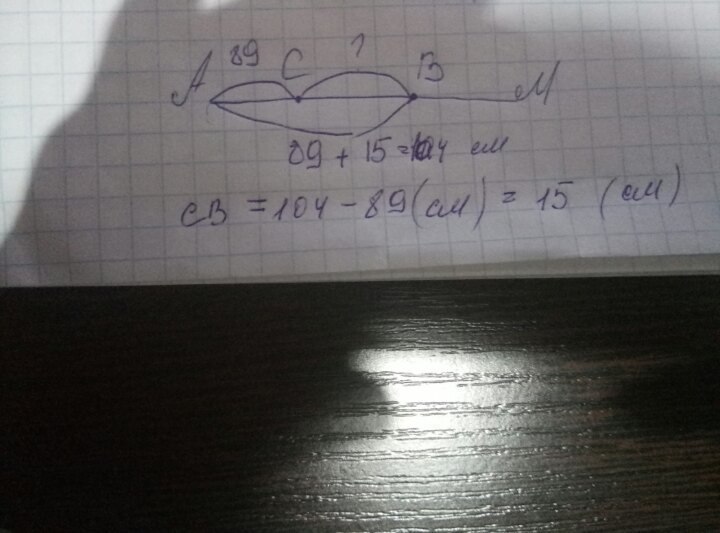 89 ?
A C B M
89 + 15 = 104 см
CB = 104 - 89 (см) = 15 (см)